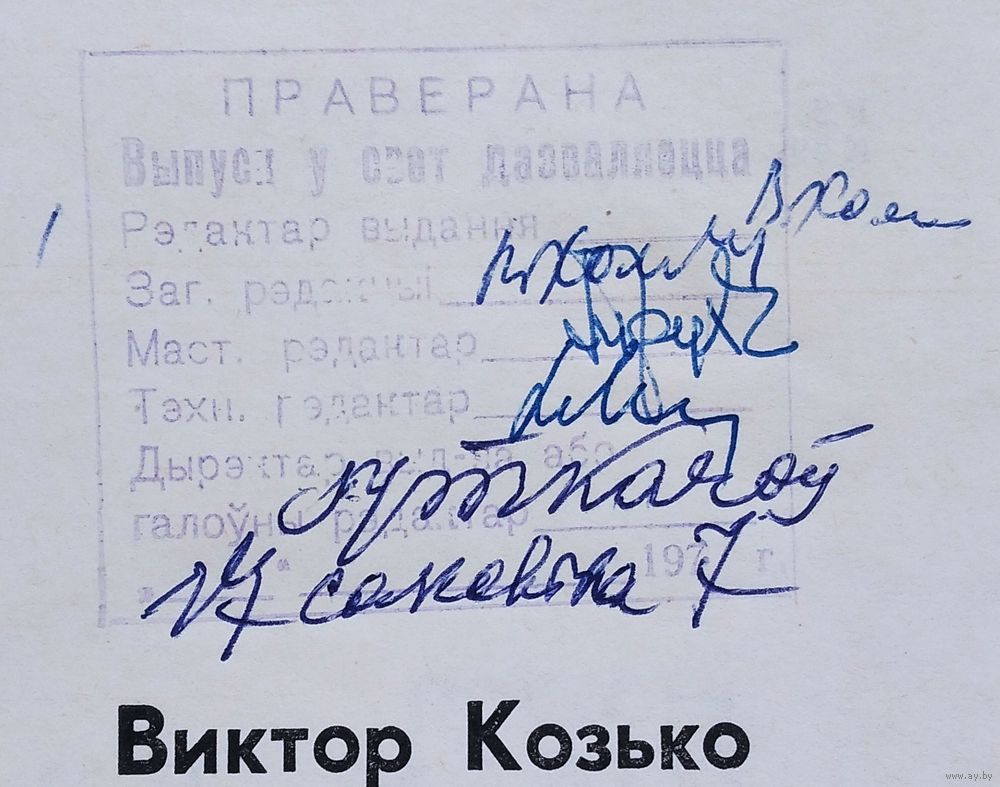 ПРАВЕРАНА
Выпуск у свет дазваляецца
Рэдактар выдання
Заг. рэдакцыі
Маст. рэдактар
Тэхн. рэдактар
Дырэктар выд-ва або
галоўны рэдактар
17 сакавіка 1977 г.
Виктор Козько
www.ay.by